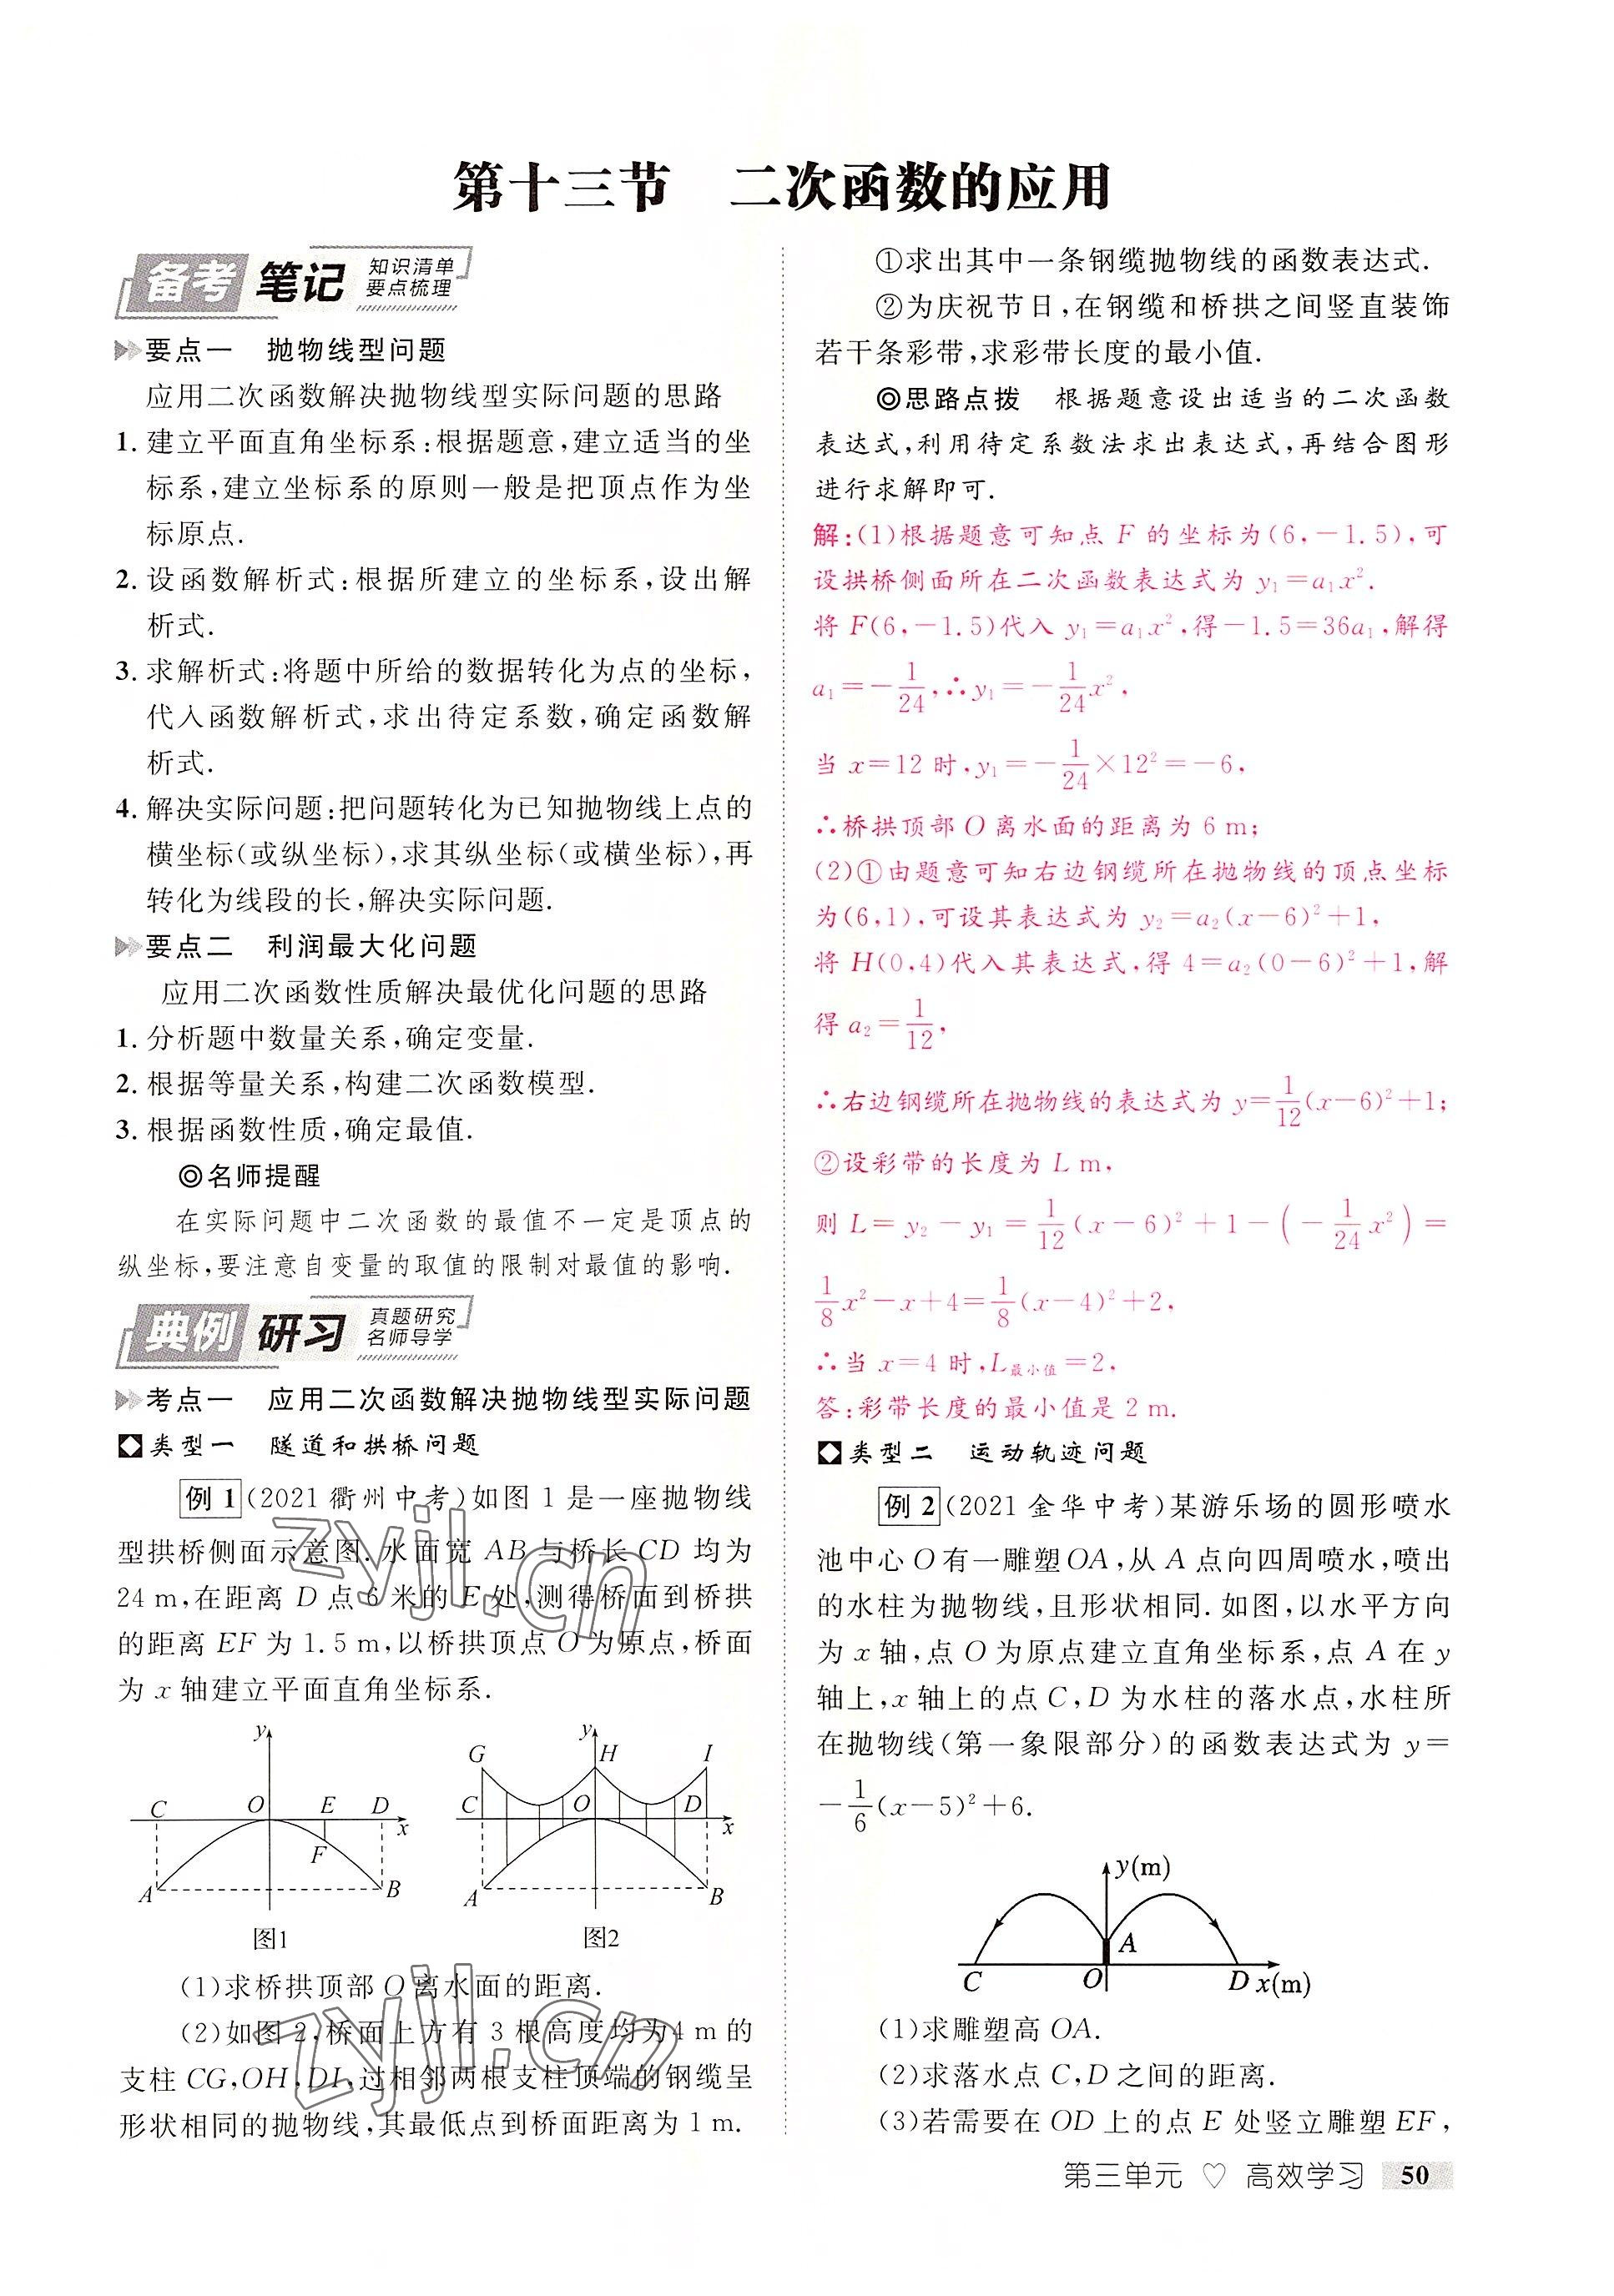 第十三节 二次函数的应用
备考 笔记 知识清单
要点梳理
要点一 抛物线型问题
应用二次函数解决抛物线型实际问题的思路
1. 建立平面直角坐标系:根据题意,建立适当的坐
标系,建立坐标系的原则一般是把顶点作为坐
标原点.
2. 设函数解析式:根据所建立的坐标系,设出解
析式.
3. 求解析式:将题中所给的数据转化为点的坐标,
代入函数解析式,求出待定系数,确定函数解
析式.
4. 解决实际问题:把问题转化为已知抛物线上点的
横坐标(或纵坐标),求其纵坐标(或横坐标),再
转化为线段的长,解决实际问题.
要点二 利润最大化问题
应用二次函数性质解决最优化问题的思路
1. 分析题中数量关系,确定变量.
2. 根据等量关系,构建二次函数模型.
3. 根据函数性质,确定最值.
◎名师提醒
在实际问题中二次函数的最值不一定是顶点的
纵坐标,要注意自变量的取值的限制对最值的影响.
典例 研习 真题研究
名师导学
考点一 应用二次函数解决抛物线型实际问题
类型一 隧道和拱桥问题
例 1 (2021 衢州中考)如图 1 是一座抛物线
型拱桥侧面示意图.水面宽 AB 与桥长 CD 均为
24 m,在距离 D 点 6 米的 E 处,测得桥面到桥拱
的距离 EF 为 1.5 m,以桥拱顶点 O 为原点,桥面
为 x 轴建立平面直角坐标系.
y
C O E D x
F
A B
图1
y
G H I
C O D x
A B
图2
(1)求桥拱顶部 O 离水面的距离.
(2)如图 2,桥面上方有 3 根高度均为4 m 的
支柱 CG,OH,DI,过相邻两根支柱顶端的钢缆呈
形状相同的抛物线,其最低点到桥面距离为 1 m.
①求出其中一条钢缆抛物线的函数表达式.
②为庆祝节日,在钢缆和桥拱之间竖直装饰
若干条彩带,求彩带长度的最小值.
◎思路点拨 根据题意设出适当的二次函数
表达式,利用待定系数法求出表达式,再结合图形
进行求解即可.
解:(1)根据题意可知点 F 的坐标为(6,-1.5),可
设拱桥侧面所在二次函数表达式为 y₁=a₁x².
将 F(6,-1.5)代入 y₁=a₁x²,得-1.5=36a₁,解得
a₁=-1/24,∴y₁=-1/24x²,
当 x=12 时,y₁=-1/24×12²=-6,
∴桥拱顶部 O 离水面的距离为 6 m;
(2)①由题意可知右边钢缆所在抛物线的顶点坐标
为(6,1),可设其表达式为 y₂=a₂(x-6)²+1,
将 H(0,4)代入其表达式,得 4=a₂(0-6)²+1,解
得 a₂=1/12,
∴右边钢缆所在抛物线的表达式为 y=1/12(x-6)²+1;
②设彩带的长度为 L m,
则 L=y₂-y₁=1/12(x-6)²+1-(-1/24x²)=
1/8x²-x+4=1/8(x-4)²+2,
∴当 x=4 时,L最小值=2,
答:彩带长度的最小值是 2 m.
类型二 运动轨迹问题
例 2 (2021 金华中考)某游乐场的圆形喷水
池中心 O 有一雕塑 OA,从 A 点向四周喷水,喷出
的水柱为抛物线,且形状相同.如图,以水平方向
为 x 轴,点 O 为原点建立直角坐标系,点 A 在 y
轴上,x 轴上的点 C,D 为水柱的落水点,水柱所
在抛物线(第一象限部分)的函数表达式为 y=
-1/6(x-5)²+6.
y(m)
A
C O D x(m)
(1)求雕塑高 OA.
(2)求落水点 C,D 之间的距离.
(3)若需要在 OD 上的点 E 处竖立雕塑 EF,
第三单元 ♡ 高效学习 50
zyjl.cn
zyjl.cn